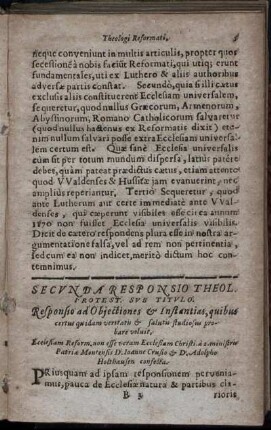 Theologi Reformati. 5
neque conveniunt in multis articulis, propter quos
secessionē à nobis faciūt Reformati, qui utiq; erunt
fundamentales, uti ex Luthero & aliis authoribus
adversæ partis constat. Secundò, quia si illi cætus
exclusis aliis constituerent Ecclesiam universalem,
sequeretur, quod nullus Græcorum, Armenorum,
Abyssinorum, Romano Catholicorum salvaretur
(quod nullus hactenus ex Reformatis dixit) et-
nim nullum salvari posse extra Ecclesiam universa-
lem certum est. Quæ sanè Ecclesia universalis
cùm sit per totum mundum dispersa, latiùs patére
debet, quàm pateat prædictus cætus, etiam attento
quod VValdenses & Hussitæ jam evanuerint, nec
ampliùs reperiantur. Tertiò Sequeretur, quod
ante Lutherum aut certe immediatè ante VVal-
denses, qui cæperunt visibiles esse circa annum
1170 non fuisset Ecclesia universalis visibilis.
Dicit de cætero respondens plura esse in nostra ar-
gumentatione falsa, vel ad rem non pertinentia,
sed cùm ea non indicet, meritò dictum hoc con-
temnimus.
SECUNDA RESPONSIO THEOL.
PROTEST. SUB TITULO.
Responsio ad Objectiones & Instantias, quibus
certus quidam veritatis & salutis studiosus pro-
bare voluit,
Ecclesiam Reform, non esse veram Ecclesiam Christi à ministris
Patriæ Montensis D. Joanne Crusio & D. Adolpho
Holthausen confecta.
PRiusquam ad ipsam responsionem pervenia-
mus, pauca de Ecclesiæ natura & partibus cla-
B 3 rioris